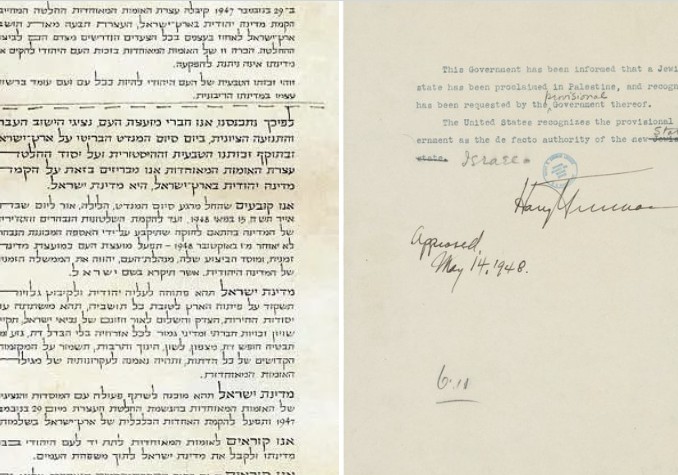 ב־29 בנובמבר 1947 קיבלה עצרת האומות המאוחדות החלטה המחייבת
הקמת מדינה יהודית בארץ־ישראל, העצרת תבעה מאת תושבי
ארץ־ישראל לאחוז בעצמם בכל הצעדים הנדרשים מצדם הם לביצוע
ההחלטה. הכרה זו של האומות המאוחדות בזכות העם היהודי להקים את
מדינתו אינה ניתנת להפקעה.
זוהי זכותו הטבעית של העם היהודי להיות ככל עם ועם עומד ברשות
עצמו במדינתו הריבונית.
לפיכך נתכנסנו, אנו חברי מועצת העם, נציגי הישוב העברי
והתנועה הציונית, ביום סיום המנדט הבריטי על ארץ־ישראל
ובתוקף זכותנו הטבעית וההיסטורית ועל יסוד החלטת
עצרת האומות המאוחדות אנו מכריזים בזאת על הקמת
מדינה יהודית בארץ־ישראל, היא מדינת ישראל.
אנו קובעים שהחל מרגע סיום המנדט, הלילה, אור ליום שבת
אייר תש״ח, 15 במאי 1948, ועד להקמת השלטונות הנבחרים והסדירים
של המדינה בהתאם לחוקה שתיקבע על־ידי האספה המכוננת הנבחרת
לא יאוחר מ־1 באוקטובר 1948 – תפעל מועצת העם כמועצת מדינה
זמנית, ומוסד הביצוע שלה, מנהלת־העם, יהווה את הממשלה הזמנית
של המדינה היהודית, אשר תיקרא בשם ישראל.
מדינת ישראל תהא פתוחה לעליה יהודית ולקיבוץ גלויות
תשקוד על פיתוח הארץ לטובת כל תושביה, תהא מושתתה על
יסודות החירות, הצדק והשלום לאור חזונם של נביאי ישראל, תקיים
שויון זכויות חברתי ומדיני גמור לכל אזרחיה בלי הבדל דת, גזע ומין
תבטיח חופש דת, מצפון, לשון, חינוך ותרבות, תשמור על המקומות
הקדושים של כל הדתות, ותהיה נאמנה לעקרונותיה של מגילת
האומות המאוחדות.
מדינת ישראל תהא מוכנה לשתף פעולה עם המוסדות והנציגים
של האומות המאוחדות בהגשמת החלטת העצרת מיום 29 בנובמבר
1947 ותפעל להקמת האחדות הכלכלית של ארץ־ישראל בשלמותה
אנו קוראים לאומות המאוחדות לתת יד לעם היהודי בבנין
מדינתו ולקבל את מדינת ישראל לתוך משפחת העמים.
אנו קוראים
This Government has been informed that a Jewi
state has been proclaimed in Palestine, and recogn
provisional
has been requested by the Government thereof.
The United States recognizes the provisional
ernment as the de facto authority of the new Jewis
Stat
state. Israel.
Harry Truman
Approved,
May 14, 1948.
6.11